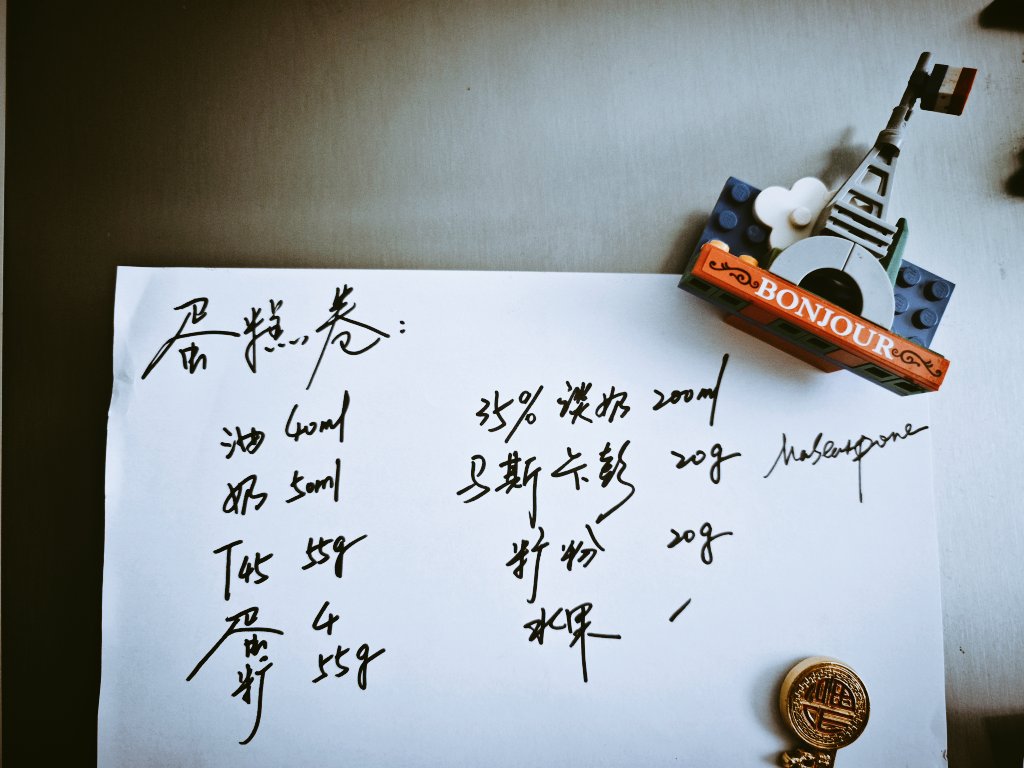 BONJOUR
蛋糕卷:
油 40ml
奶 50ml
T45 55g
蛋 4
糖 55g
35% 淡奶 200ml
马斯卡彭 20g Mascarpone
糖粉 20g
水果 /
福